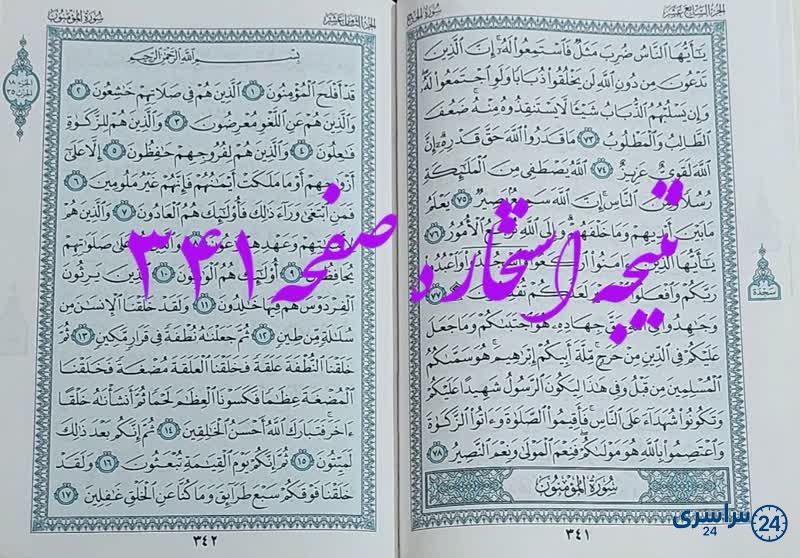 الجزء السابع عشر
سورة الحج
يَٰٓأَيُّهَا ٱلنَّاسُ ضُرِبَ مَثَلٌ فَٱسْتَمِعُوا۟ لَهُۥٓ إِنَّ ٱلَّذِينَ
تَدْعُونَ مِن دُونِ ٱللَّهِ لَن يَخْلُقُوا۟ ذُبَابًا وَلَوِ ٱجْتَمَعُوا۟ لَهُۥ
وَإِن يَسْلُبْهُمُ ٱلذُّبَابُ شَيْـًٔا لَّا يَسْتَنقِذُوهُ مِنْهُ ضَعُفَ
ٱلطَّالِبُ وَٱلْمَطْلُوبُ ٧٣ مَا قَدَرُوا۟ ٱللَّهَ حَقَّ قَدْرِهِۦٓ إِنَّ
ٱللَّهَ لَقَوِىٌّ عَزِيزٌ ٧٤ ٱللَّهُ يَصْطَفِى مِنَ ٱلْمَلَٰٓئِكَةِ
رُسُلًا وَمِنَ ٱلنَّاسِ إِنَّ ٱللَّهَ سَمِيعٌ بَصِيرٌ ٧٥ يَعْلَمُ
مَا بَيْنَ أَيْدِيهِمْ وَمَا خَلْفَهُمْ وَإِلَى ٱللَّهِ تُرْجَعُ ٱلْأُمُورُ ٧٦
يَٰٓأَيُّهَا ٱلَّذِينَ ءَامَنُوا۟ ٱرْكَعُوا۟ وَٱسْجُدُوا۟ وَٱعْبُدُوا۟
رَبَّكُمْ وَٱفْعَلُوا۟ ٱلْخَيْرَ لَعَلَّكُمْ تُفْلِحُونَ ٧٧
وَجَٰهِدُوا۟ فِى ٱللَّهِ حَقَّ جِهَادِهِۦ هُوَ ٱجْتَبَىٰكُمْ وَمَا جَعَلَ
عَلَيْكُمْ فِى ٱلدِّينِ مِنْ حَرَجٍ مِّلَّةَ أَبِيكُمْ إِبْرَٰهِيمَ هُوَ سَمَّىٰكُمُ
ٱلْمُسْلِمِينَ مِن قَبْلُ وَفِى هَٰذَا لِيَكُونَ ٱلرَّسُولُ شَهِيدًا عَلَيْكُمْ
وَتَكُونُوا۟ شُهَدَآءَ عَلَى ٱلنَّاسِ فَأَقِيمُوا۟ ٱلصَّلَوٰةَ وَءَاتُوا۟ ٱلزَّكَوٰةَ
وَٱعْتَصِمُوا۟ بِٱللَّهِ هُوَ مَوْلَىٰكُمْ فَنِعْمَ ٱلْمَوْلَىٰ وَنِعْمَ ٱلنَّصِيرُ ٧٨
سورة المؤمنون
٣٤١
سجدة
الجزء الثامن عشر
سورة المؤمنون
بِسْمِ ٱللَّهِ ٱلرَّحْمَٰنِ ٱلرَّحِيمِ
قَدْ أَفْلَحَ ٱلْمُؤْمِنُونَ ١ ٱلَّذِينَ هُمْ فِى صَلَاتِهِمْ خَٰشِعُونَ ٢
وَٱلَّذِينَ هُمْ عَنِ ٱللَّغْوِ مُعْرِضُونَ ٣ وَٱلَّذِينَ هُمْ لِلزَّكَوٰةِ
فَٰعِلُونَ ٤ وَٱلَّذِينَ هُمْ لِفُرُوجِهِمْ حَٰفِظُونَ ٥ إِلَّا عَلَىٰٓ
أَزْوَٰجِهِمْ أَوْ مَا مَلَكَتْ أَيْمَٰنُهُمْ فَإِنَّهُمْ غَيْرُ مَلُومِينَ ٦
فَمَنِ ٱبْتَغَىٰ وَرَآءَ ذَٰلِكَ فَأُو۟لَٰٓئِكَ هُمُ ٱلْعَادُونَ ٧ وَٱلَّذِينَ هُمْ
لِأَمَٰنَٰتِهِمْ وَعَهْدِهِمْ رَٰعُونَ ٨ وَٱلَّذِينَ هُمْ عَلَىٰ صَلَوَٰتِهِمْ
يُحَافِظُونَ ٩ أُو۟لَٰٓئِكَ هُمُ ٱلْوَٰرِثُونَ ١٠ ٱلَّذِينَ يَرِثُونَ
ٱلْفِرْدَوْسَ هُمْ فِيهَا خَٰلِدُونَ ١١ وَلَقَدْ خَلَقْنَا ٱلْإِنسَٰنَ مِن
سُلَٰلَةٍ مِّن طِينٍ ١٢ ثُمَّ جَعَلْنَٰهُ نُطْفَةً فِى قَرَارٍ مَّكِينٍ ١٣ ثُمَّ
خَلَقْنَا ٱلنُّطْفَةَ عَلَقَةً فَخَلَقْنَا ٱلْعَلَقَةَ مُضْغَةً فَخَلَقْنَا
ٱلْمُضْغَةَ عِظَٰمًا فَكَسَوْنَا ٱلْعِظَٰمَ لَحْمًا ثُمَّ أَنشَأْنَٰهُ خَلْقًا
ءَاخَرَ فَتَبَارَكَ ٱللَّهُ أَحْسَنُ ٱلْخَٰلِقِينَ ١٤ ثُمَّ إِنَّكُم بَعْدَ ذَٰلِكَ
لَمَيِّتُونَ ١٥ ثُمَّ إِنَّكُمْ يَوْمَ ٱلْقِيَٰمَةِ تُبْعَثُونَ ١٦ وَلَقَدْ
خَلَقْنَا فَوْقَكُمْ سَبْعَ طَرَآئِقَ وَمَا كُنَّا عَنِ ٱلْخَلْقِ غَٰفِلِينَ ١٧
٣٤٢
نتیجه استخاره صفحه ۳۴۱
سراسری
24
24